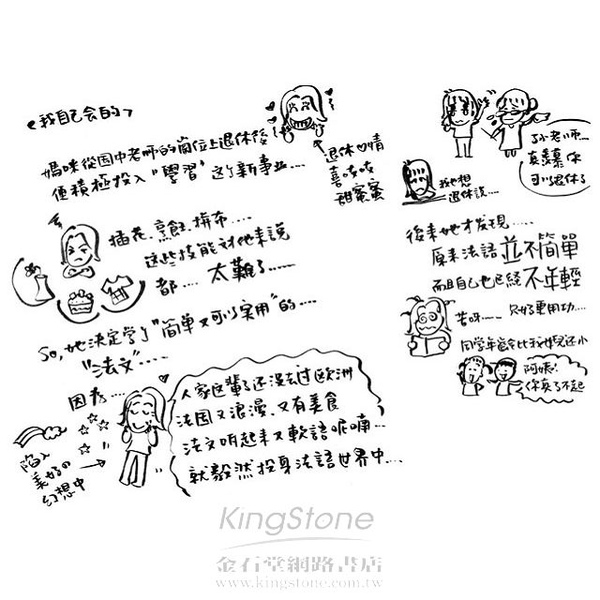 <我自己会的>
媽咪從国中老师的崗位上退休後
便積極投入"學習"这个新事业....
退休心情
喜吱吱
甜蜜蜜
插花、烹飪、拼布.....
这些技能对他来说
都.... 太難了.....
So, 她決定学了"簡单又可以实用"的....
"法文"....
因為...
人家這輩子还没去过欧洲
法国又浪漫、又有美食
法文听起来又軟語呢喃...
就毅然投身法語世界中....
陷入
美好の
幻想中
孙老师...
真羨慕你
可以退休了
我也想
退休說....
後来她才发現.....
原来法語並不簡單
而且自己也已経不年輕
苦呀.... 只好更用功....
同学年龄会比我女兒还小
阿姨!
你真了不起
KingStone
金石堂網路書店
www.kingstone.com.tw